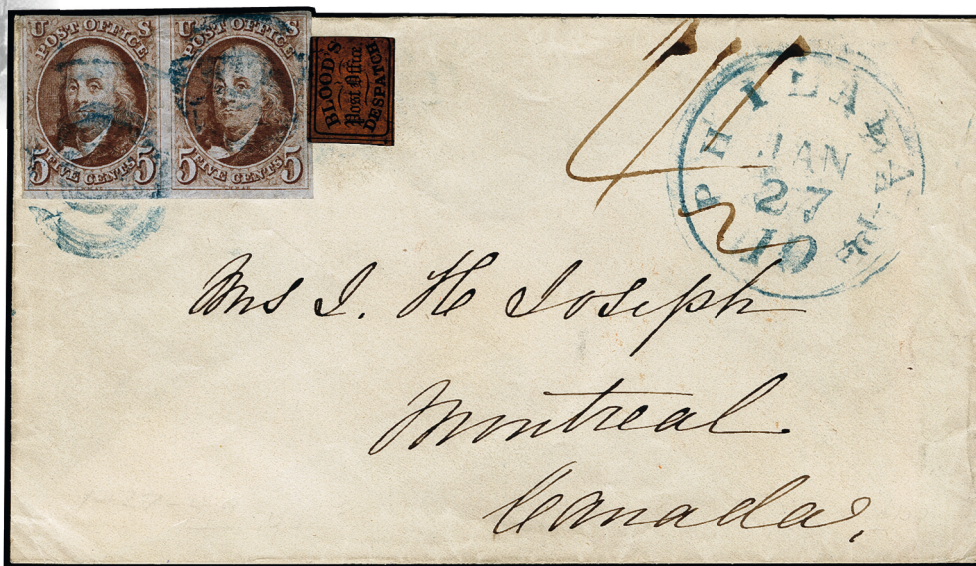 U S
POST OFFICE
5 FIVE CENTS 5
U S
POST OFFICE
5 FIVE CENTS 5
BLOOD'S
Post Office
DESPATCH
PHILADA Pa.
JAN
27
10
Mrs J. H Joseph
Montreal
Canada,